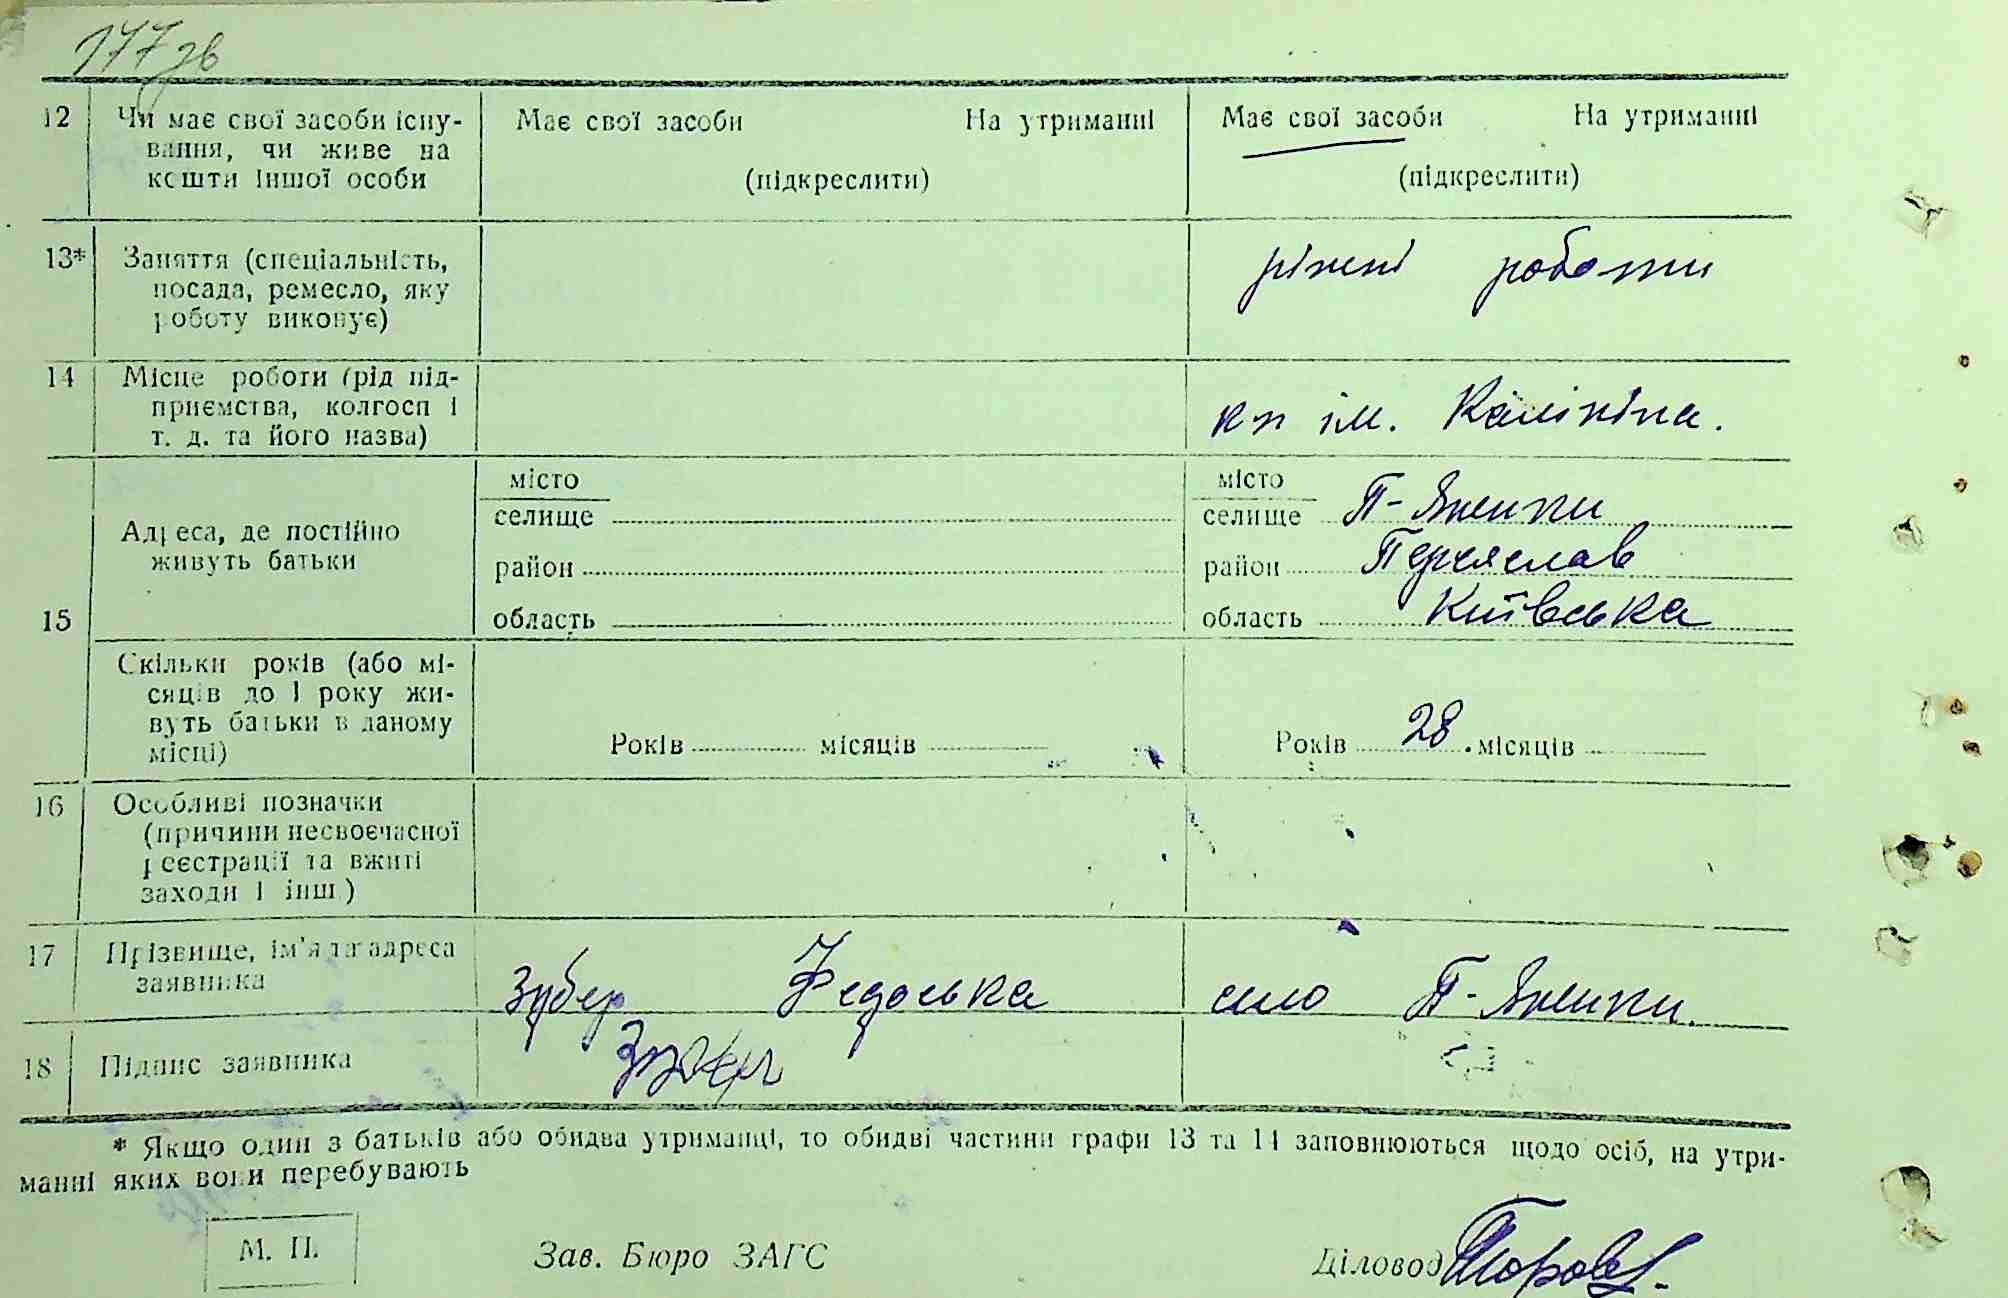 177зв
12 Чи має свої засоби існу- Має свої засоби На утриманні Має свої засоби На утриманні
вання, чи живе на
кошти іншої особи (підкреслити) (підкреслити)
13* Заняття (спеціальність, різні роботи
посада, ремесло, яку
роботу виконує)
14 Місце роботи (рід під-
приємства, колгосп і кп ім. Калініна.
т. д. та його назва)
місто місто
селище селище П-Яненки
Адреса, де постійно
живуть батьки район район Переяслав
15 область область Київська
Скільки років (або мі-
сяців до 1 року жи-
вуть батьки в даному
місці) Років місяців Років 28. місяців
16 Особливі позначки
(причини несвоєчасної
реєстрації та вжиті
заходи і інш.)
17 Прізвище, ім'я та адреса
заявника Зубер Федоська село П-Яненки.
18 Підпис заявника Зубер
* Якщо один з батьків або обидва утриманці, то обидві частини графи 13 та 14 заповнюються щодо осіб, на утри-
манні яких вони перебувають
М. П. Зав. Бюро ЗАГС Діловод